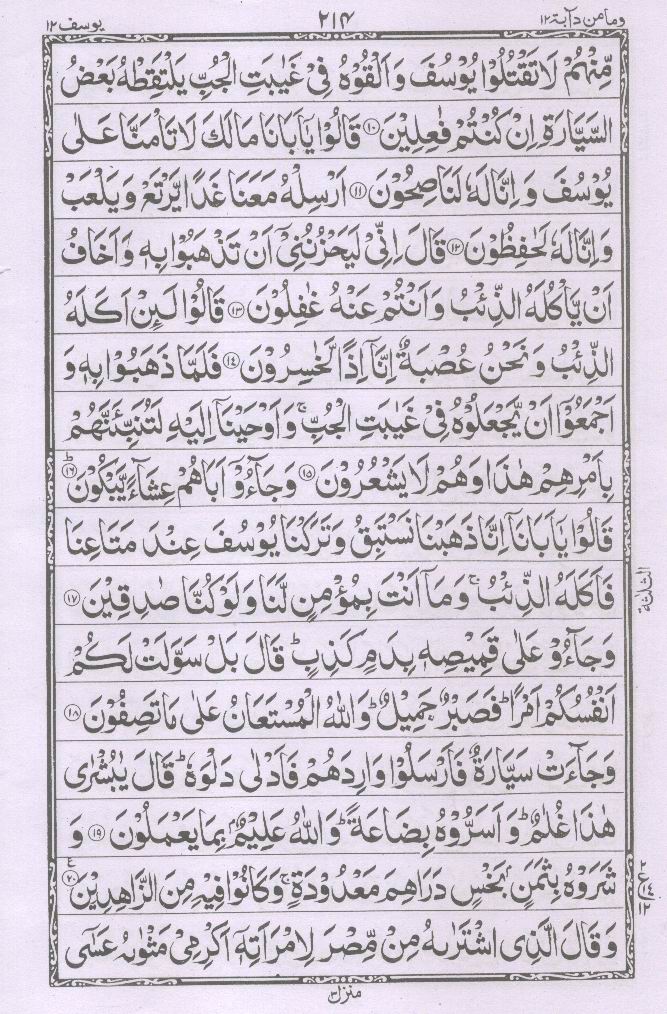 وما من دآبة ١٢
٢١٤
يوسف ١٢
مِّنْهُمْ لَا تَقْتُلُوْا يُوْسُفَ وَاَلْقُوْهُ فِيْ غَيٰبَتِ الْجُبِّ يَلْتَقِطْهُ بَعْضُ
السَّيَّارَةِ اِنْ كُنْتُمْ فٰعِلِيْنَ ⑩ قَالُوْا يٰٓاَبَانَا مَا لَكَ لَا تَاْمَنَّا عَلٰى
يُوْسُفَ وَاِنَّا لَهٗ لَنٰصِحُوْنَ ⑪ اَرْسِلْهُ مَعَنَا غَدًا يَّرْتَعْ وَيَلْعَبْ
وَاِنَّا لَهٗ لَحٰفِظُوْنَ ⑫ قَالَ اِنِّيْ لَيَحْزُنُنِيْٓ اَنْ تَذْهَبُوْا بِهٖ وَاَخَافُ
اَنْ يَّاْكُلَهُ الذِّئْبُ وَاَنْتُمْ عَنْهُ غٰفِلُوْنَ ⑬ قَالُوْا لَىِٕنْ اَكَلَهُ
الذِّئْبُ وَنَحْنُ عُصْبَةٌ اِنَّآ اِذًا لَّخٰسِرُوْنَ ⑭ فَلَمَّا ذَهَبُوْا بِهٖ وَ
اَجْمَعُوْٓا اَنْ يَّجْعَلُوْهُ فِيْ غَيٰبَتِ الْجُبِّ ۚ وَاَوْحَيْنَآ اِلَيْهِ لَتُنَبِّئَنَّهُمْ
بِاَمْرِهِمْ هٰذَا وَهُمْ لَا يَشْعُرُوْنَ ⑮ وَجَآءُوْٓ اَبَاهُمْ عِشَآءً يَّبْكُوْنَ ؕ⑯
قَالُوْا يٰٓاَبَانَآ اِنَّا ذَهَبْنَا نَسْتَبِقُ وَتَرَكْنَا يُوْسُفَ عِنْدَ مَتَاعِنَا
فَاَكَلَهُ الذِّئْبُ ۚ وَمَآ اَنْتَ بِمُؤْمِنٍ لَّنَا وَلَوْ كُنَّا صٰدِقِيْنَ ⑰
وَجَآءُوْ عَلٰى قَمِيْصِهٖ بِدَمٍ كَذِبٍ ؕ قَالَ بَلْ سَوَّلَتْ لَكُمْ
اَنْفُسُكُمْ اَمْرًا ؕ فَصَبْرٌ جَمِيْلٌ ؕ وَاللّٰهُ الْمُسْتَعَانُ عَلٰى مَا تَصِفُوْنَ ⑱
وَجَآءَتْ سَيَّارَةٌ فَاَرْسَلُوْا وَارِدَهُمْ فَاَدْلٰى دَلْوَهٗ ؕ قَالَ يٰبُشْرٰى
هٰذَا غُلٰمٌ ؕ وَاَسَرُّوْهُ بِضَاعَةً ؕ وَاللّٰهُ عَلِيْمٌۢ بِمَا يَعْمَلُوْنَ ⑲ وَ
شَرَوْهُ بِثَمَنٍۢ بَخْسٍ دَرَاهِمَ مَعْدُوْدَةٍ ۚ وَكَانُوْا فِيْهِ مِنَ الزَّاهِدِيْنَ ⑳ع
وَقَالَ الَّذِى اشْتَرٰىهُ مِنْ مِّصْرَ لِامْرَاَتِهٖٓ اَكْرِمِيْ مَثْوٰىهُ عَسٰٓى
الثلثة
٢
ع
١٤
١٢
منزل ٣